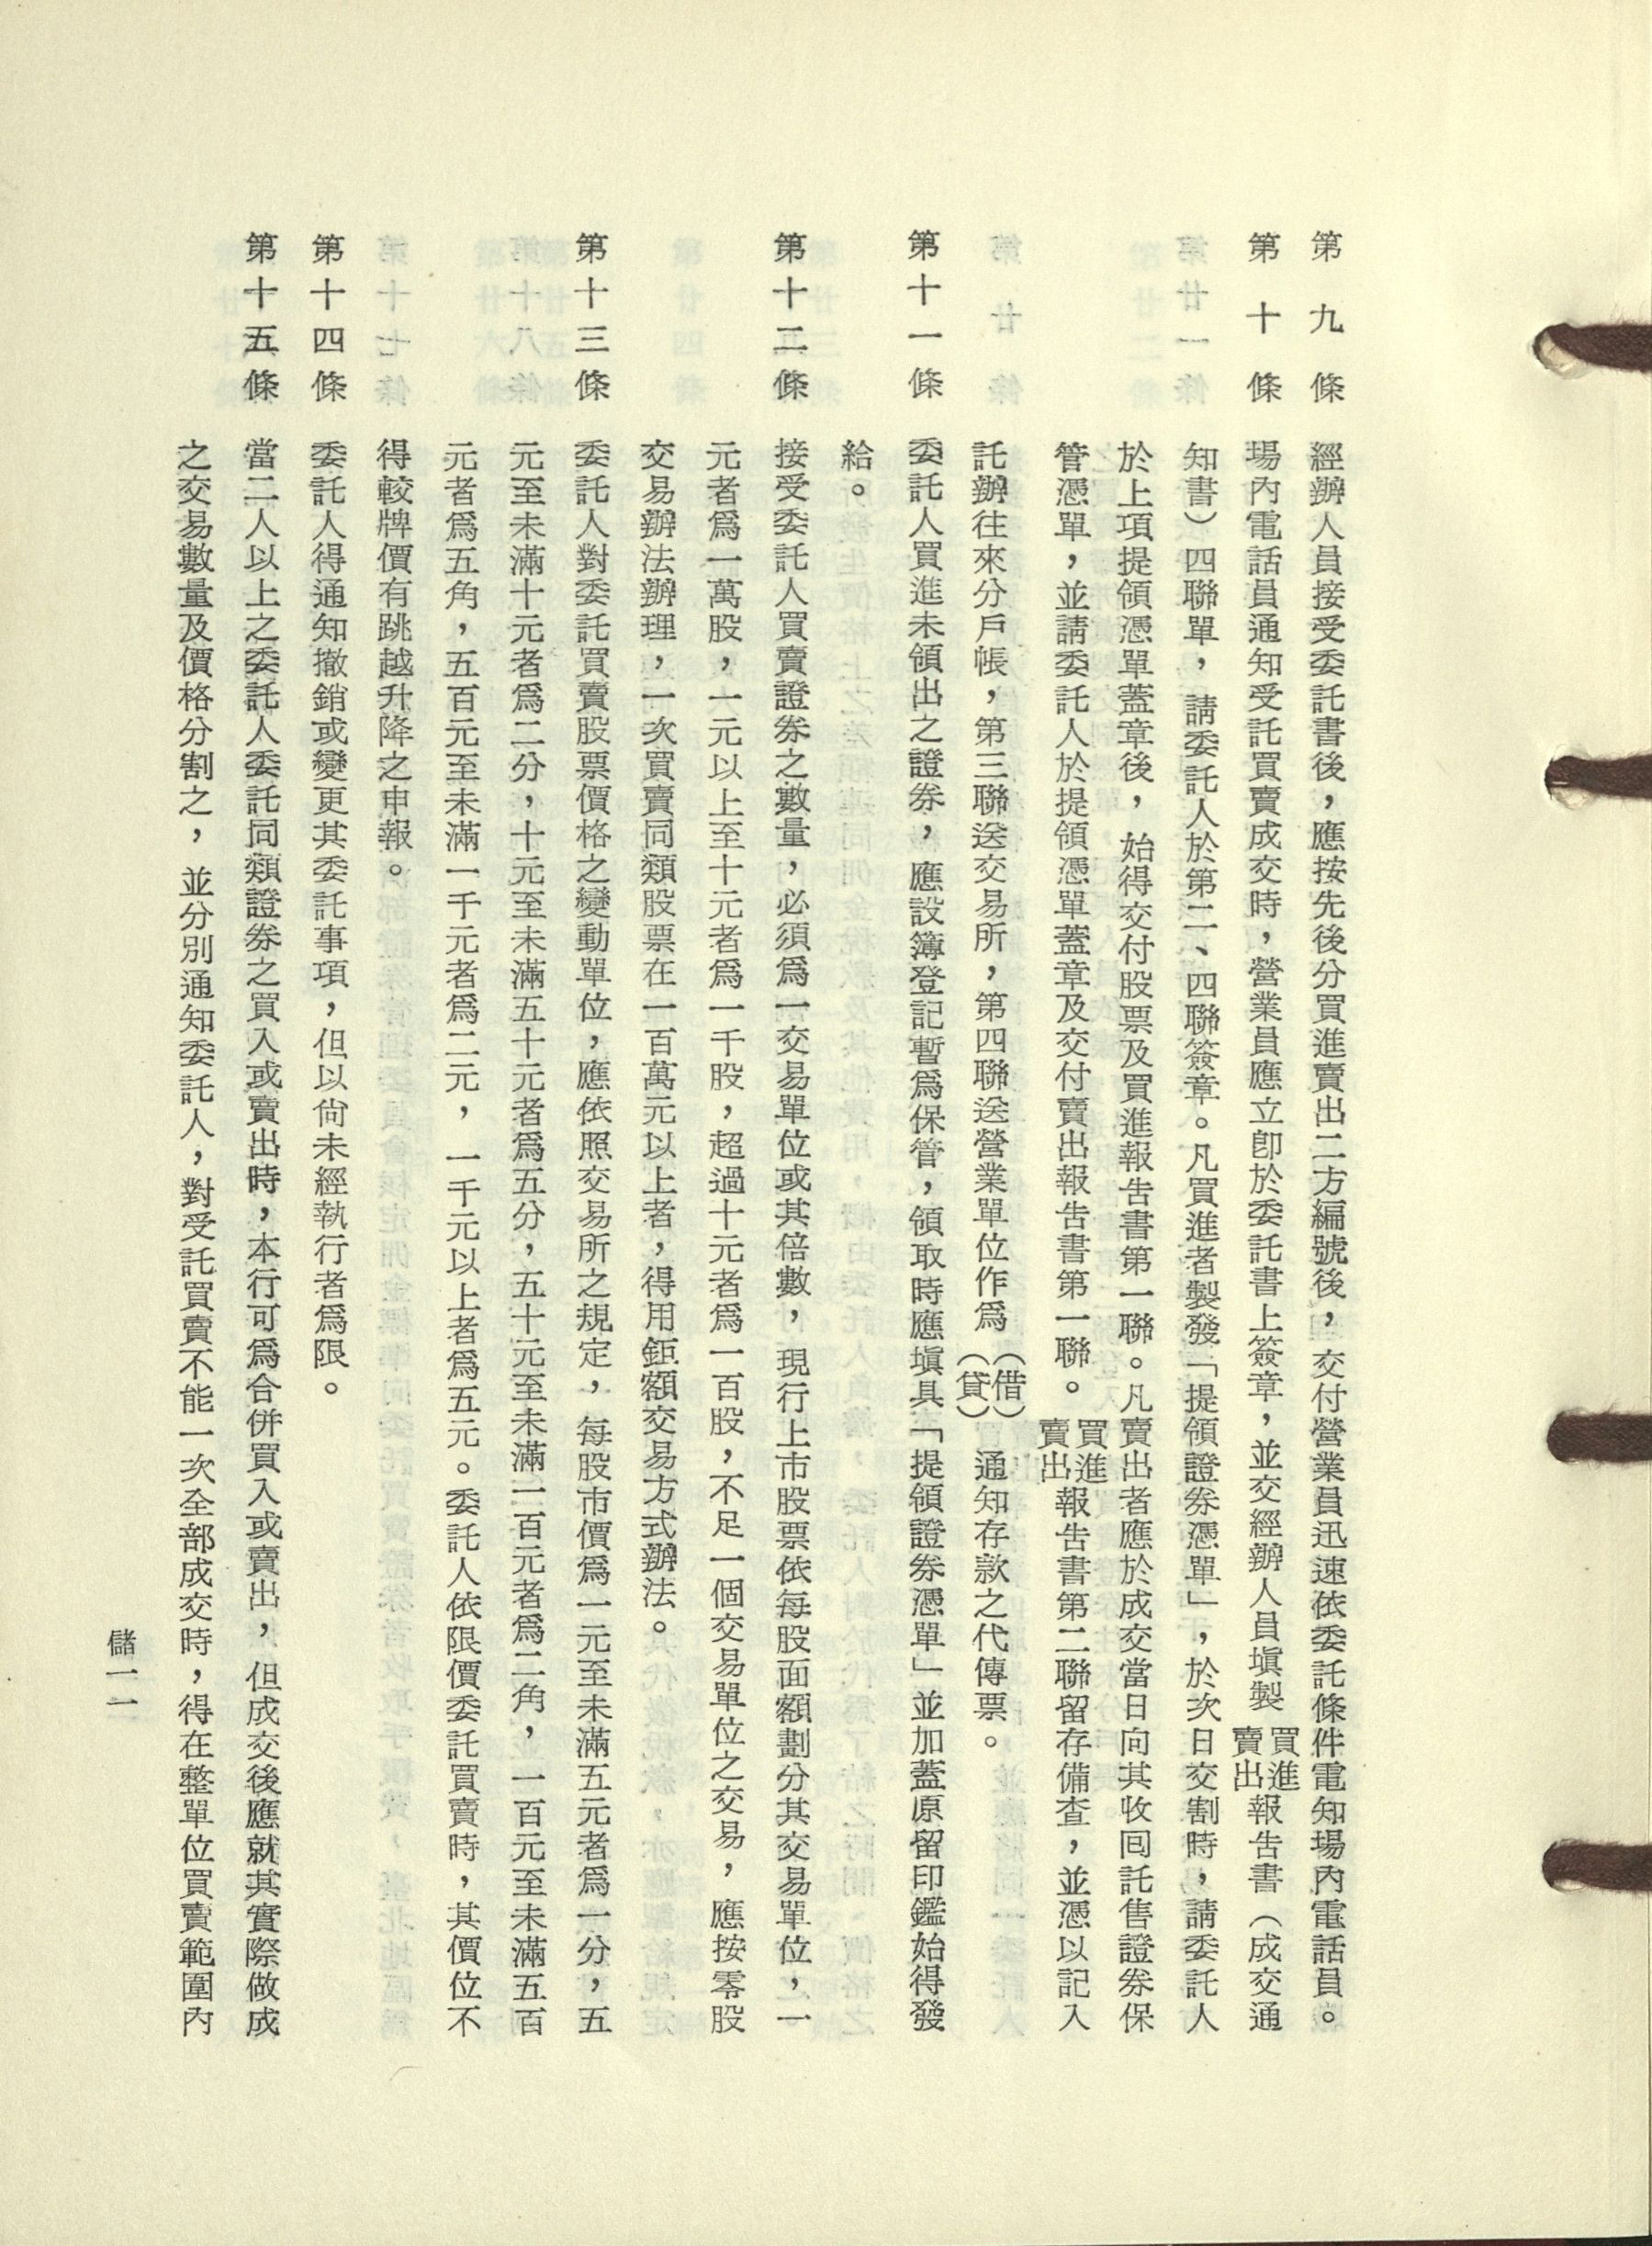 第九條　經辦人員接受委託書後，應按先後分買進賣出二方編號後，交付營業員迅速依委託條件電知場內電話員。
第十條　場內電話員通知受託買賣成交時，營業員應立卽於委託書上簽章，並交經辦人員塡製買進賣出報告書（成交通
知書）四聯單，請委託人於第二、四聯簽章。凡買進者製發「提領證券憑單」，於次日交割時，請委託人
於上項提領憑單蓋章後，始得交付股票及買進報告書第一聯。凡賣出者應於成交當日向其收回託售證券保
管憑單，並請委託人於提領憑單蓋章及交付賣出報告書第一聯。買進賣出報告書第二聯留存備查，並憑以記入
託辦往來分戶帳，第三聯送交易所，第四聯送營業單位作爲（借）（貸）通知存款之代傳票。
第十一條　委託人買進未領出之證券，應設簿登記暫爲保管，領取時應塡具「提領證券憑單」並加蓋原留印鑑始得發
給。
第十二條　接受委託人買賣證券之數量，必須爲一交易單位或其倍數，現行上市股票依每股面額劃分其交易單位，一
元者爲一萬股，一元以上至十元者爲一千股，超過十元者爲一百股，不足一個交易單位之交易，應按零股
交易辦法辦理，一次買賣同類股票在一百萬元以上者，得用鉅額交易方式辦法。
第十三條　委託人對委託買賣股票價格之變動單位，應依照交易所之規定，每股市價爲一元至未滿五元者爲一分，五
元至未滿十元者爲二分，十元至未滿五十元者爲五分，五十元至未滿一百元者爲二角，一百元至未滿五百
元者爲五角，五百元至未滿一千元者爲二元，一千元以上者爲五元。委託人依限價委託買賣時，其價位不
得較牌價有跳越升降之申報。
第十四條　委託人得通知撤銷或變更其委託事項，但以尙未經執行者爲限。
第十五條　當二人以上之委託人委託同類證券之買入或賣出時，本行可爲合併買入或賣出，但成交後應就其實際做成
之交易數量及價格分割之，並分別通知委託人，對受託買賣不能一次全部成交時，得在整單位買賣範圍內
儲一一